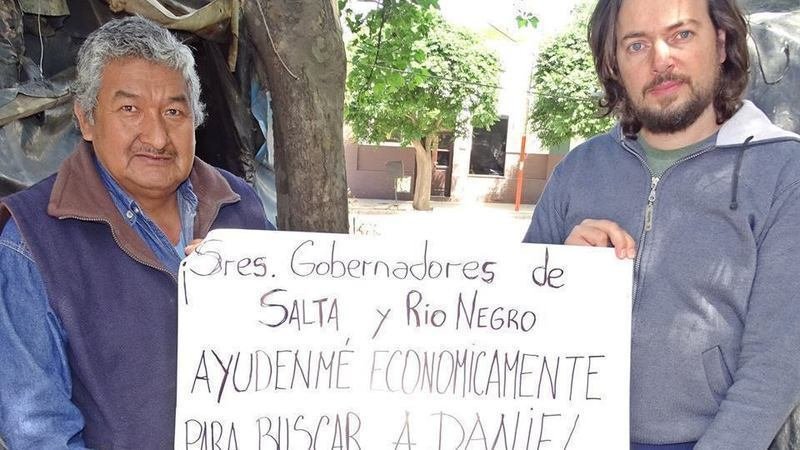 ¡Sres. Gobernadores de
SALTA y RIO NEGRO
AYUDENMÉ ECONOMICAMENTE
PARA BUSCAR A DANIEL